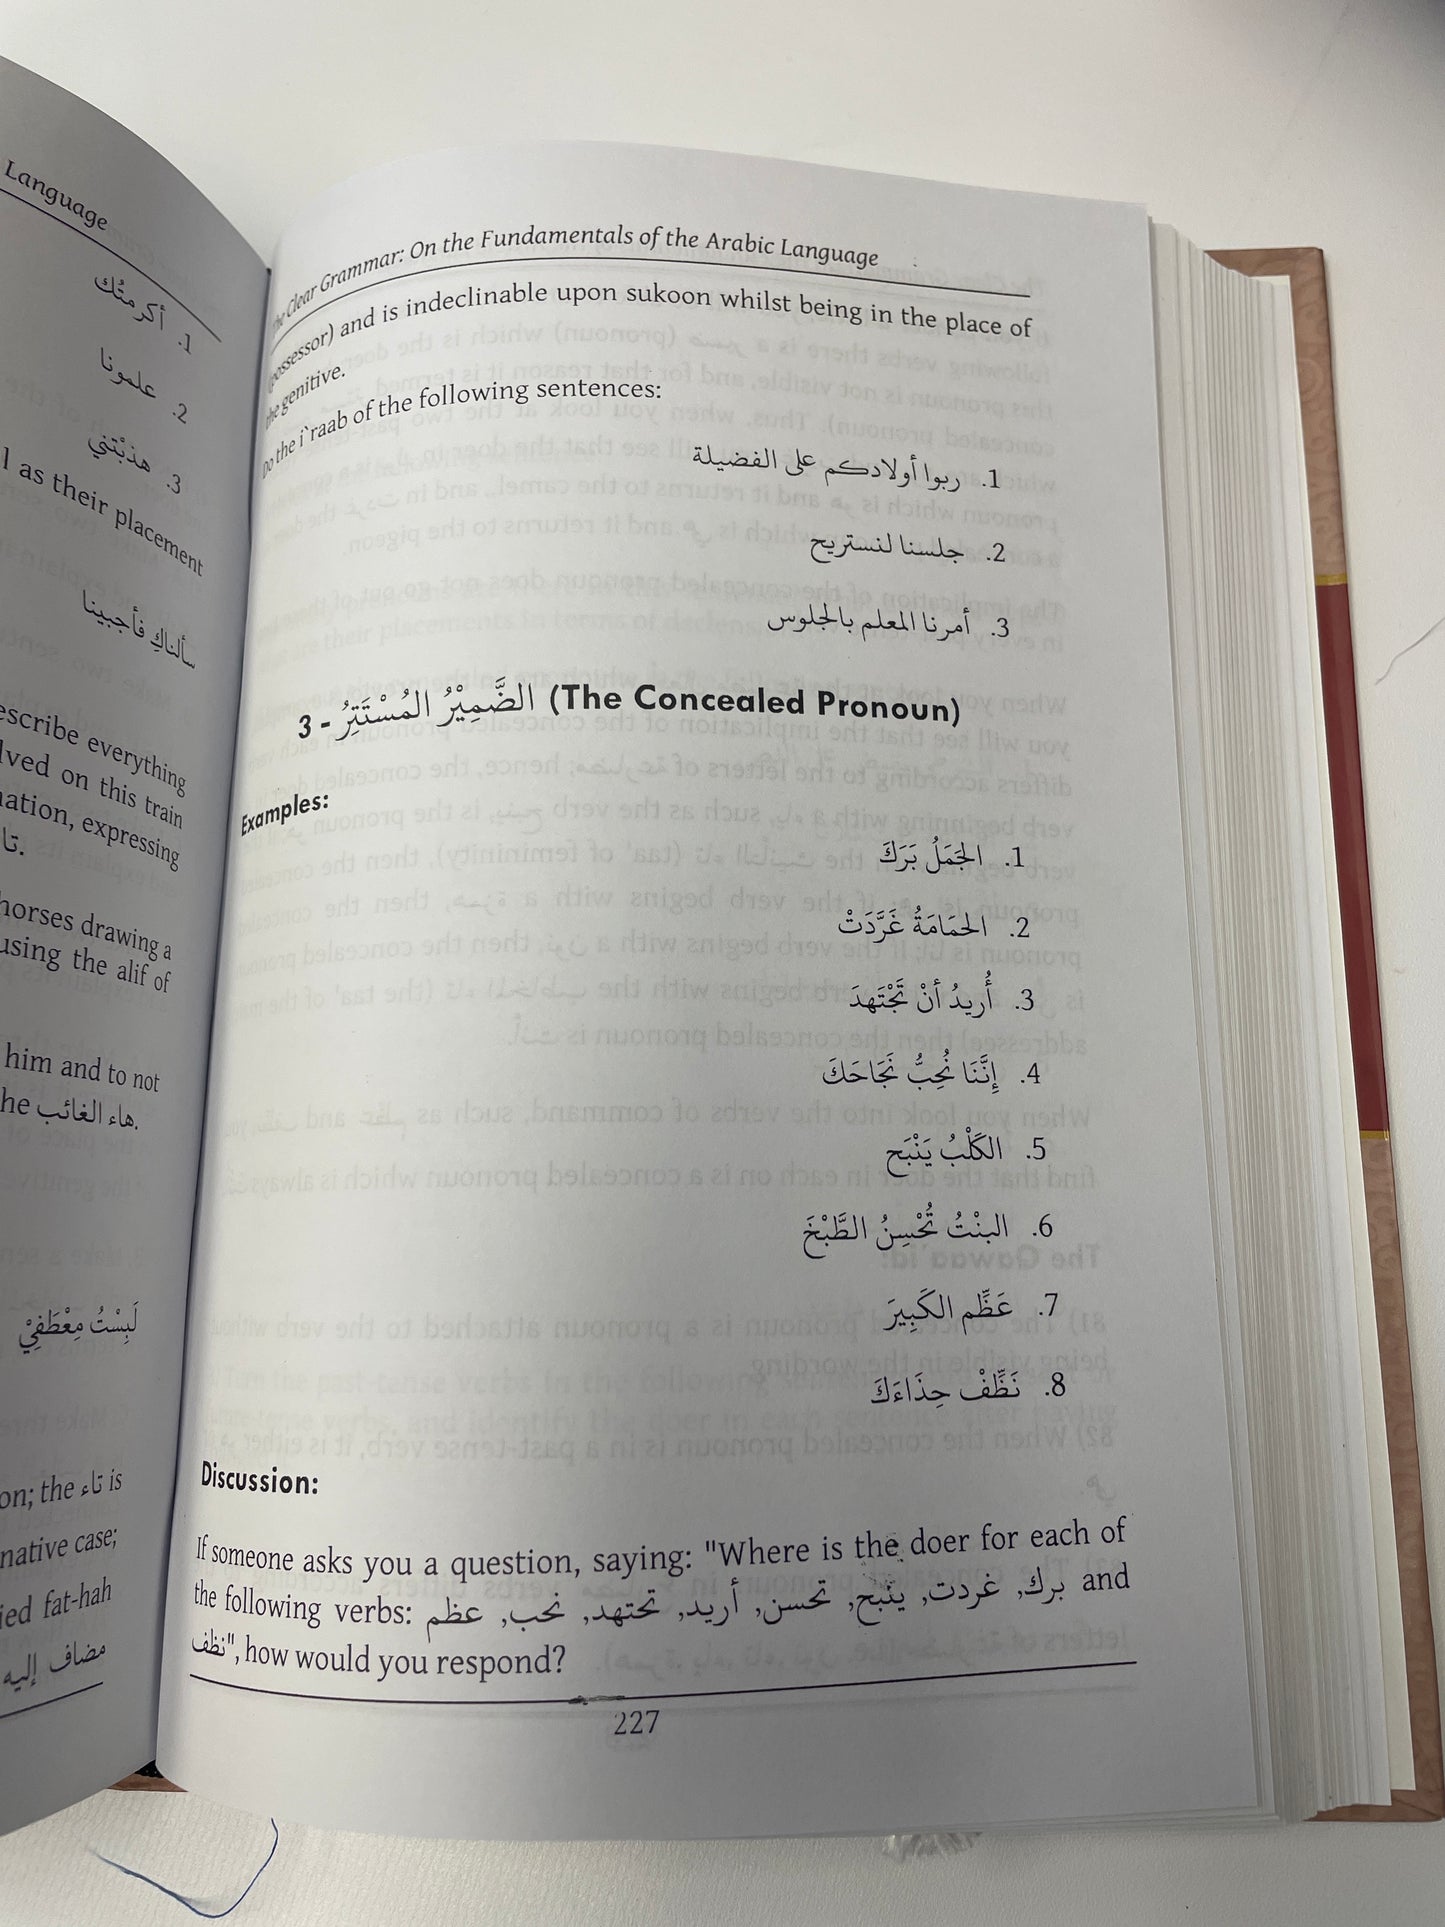 Language
1. أكرمتُك
2. علمونا
3. هذبْتني
l as their placement
سألناكِ فأجبينا
escribe everything
lved on this train
nation, expressing
تا.
horses drawing a
using the alif of
him and to not
he هاء الغائب.
لَبِسْتُ مِعْطَفِيْ
on; the تاء is
native case;
ied fat-hah
مضاف إليه
The Clear Grammar: On the Fundamentals of the Arabic Language
(possessor) and is indeclinable upon sukoon whilst being in the place of
the genitive.
Do the i`raab of the following sentences:
1. ربوا أولادكم على الفضيلة
2. جلسنا لنستريح
3. أمرنا المعلم بالجلوس
3 - الضَّمِيْرُ المُسْتَتِرُ (The Concealed Pronoun)
Examples:
1. الجَمَلُ بَرَكَ
2. الحَمَامَةُ غَرَّدَتْ
3. أُرِيدُ أنْ تَجْتَهِدَ
4. إِنَّنَا نُحِبُّ نَجَاحَكَ
5. الكَلْبُ يَنْبَح
6. البنْتُ تُحْسِنُ الطَّبْخَ
7. عَظِّم الكَبِيرَ
8. نَظِّفْ حِذَاءَكَ
Discussion:
If someone asks you a question, saying: "Where is the doer for each of
the following verbs: برك, غردت, ينبح, تحسن, أريد, تجتهد, نحب, عظم and
نظف", how would you respond?
227